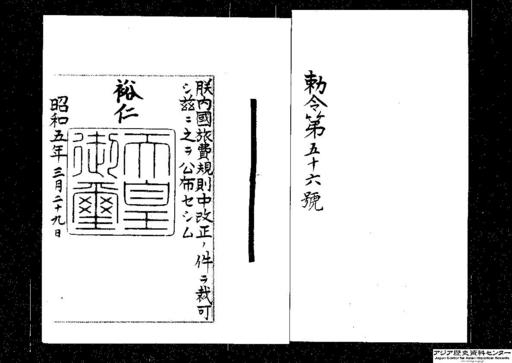 勅令第五十六號
朕內國旅費規則中改正ノ件ヲ裁可
シ茲ニ之ヲ公布セシム
裕仁
天皇
御璽
昭和五年三月二十九日
アジア歴史資料センター
Japan Center for Asian Historical Records